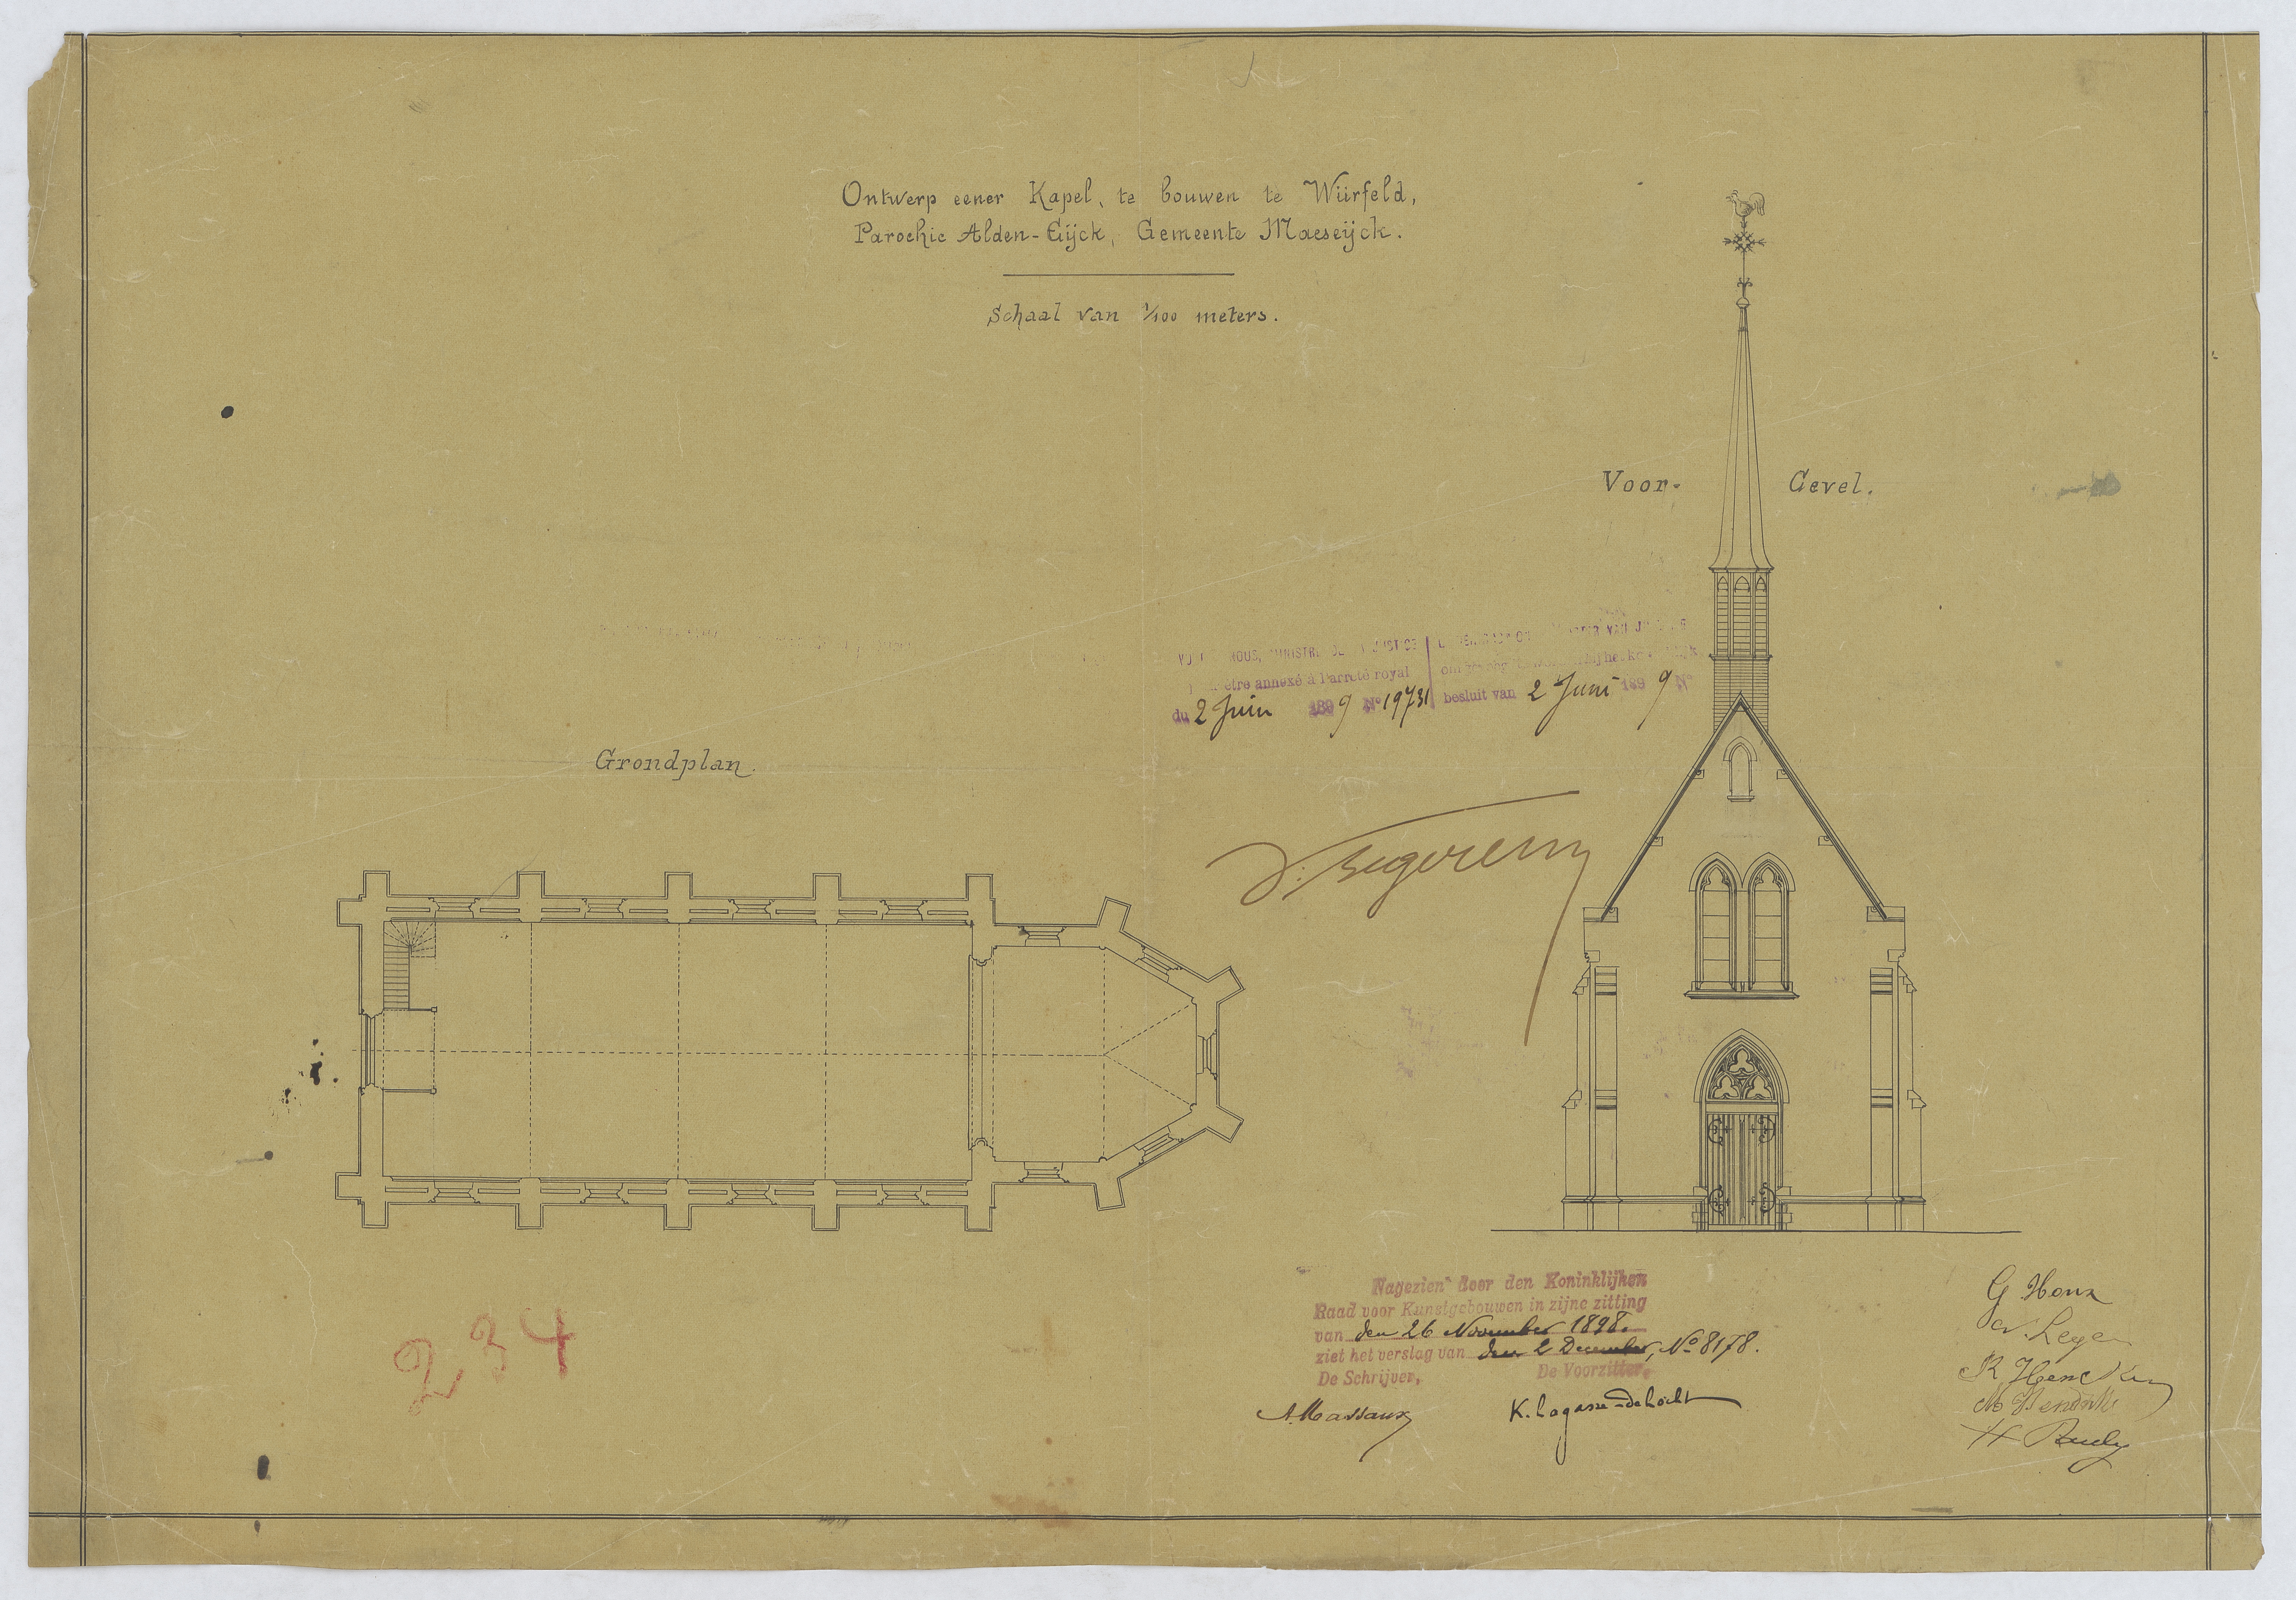 Ontwerp eener Kapel, te bouwen te Würfeld,
Parochie Alden-Eijck, Gemeente Maeseijck.
Schaal van 1/100 meters.
Voor- Gevel.
NOUS, MINISTRE
être annexé à l'arrêté royal
du 2 Juin 1899 N° 19731
VAN
besluit van 2 Juni 1899 N°
Grondplan.
Nagezien door den Koninklijken
Raad voor Kunstgebouwen in zijne zitting
van den 26 November 1898.
ziet het verslag van den 2 December, No 8178.
De Schrijver, De Voorzitter,
A. Massaux K. Lagasse-deLocht
G. Houx
R Hencken
H
234